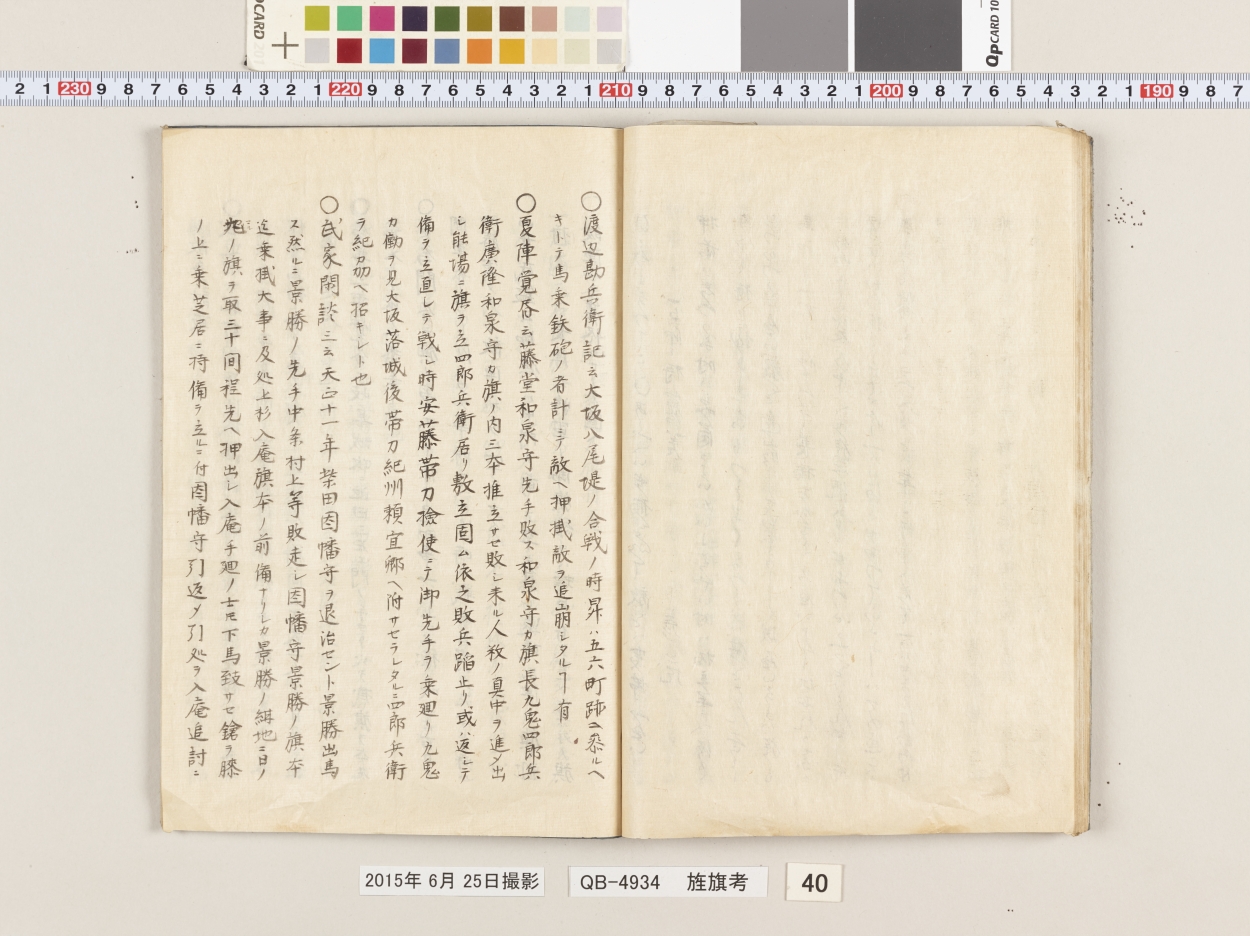 ○渡辺勘兵衛記云大坂八尾堤ノ合戦ノ時昇ハ五六町跡ヘ参ルヘ
キトテ馬乗鉄砲ノ者計ニテ敵ヘ押掛敵ヲ追崩シタルヿ有
○夏陣覚居云藤堂和泉守先手敗ス和泉守カ旗長九鬼四郎兵
衛廣隆和泉守カ旗ノ内三本推立サセ敗シ来ル人数ノ真中ヲ進メ出
シ能場ニ旗ヲ立四郎兵衛居リ敷立固ム依之敗兵蹈止リ或ハ返シテ
備ヲ立直シテ戦シ時安藤帯刀撿使ニテ御先手ヲ乗廻リ九鬼
カ働ヲ見大坂落城後帯刀紀州頼宣郷ヘ附サセラレタルニ四郎兵衛
ヲ紀刕ヘ招キシト也
○武家閑談ニ云天正十一年柴田因幡守ヲ退治セント景勝出馬
ス然ルニ景勝ノ先手中条村上等敗走シ因幡守景勝ノ旗本
迄乗掛大事ニ及処上杉入庵旗本ノ前備ナリシカ景勝ノ紺地ニ日ノ
丸ノ旗ヲ取三十間程先ヘ押出シ入庵手廻ノ士𪜈下馬致サセ鎗ヲ膝
ノ上ニ乗芝居ニ持備ヲ立ルニ付因幡守引返メ引処ヲ入庵追討ニ
2015年 6月 25日撮影
QB-4934 旌旗考
40